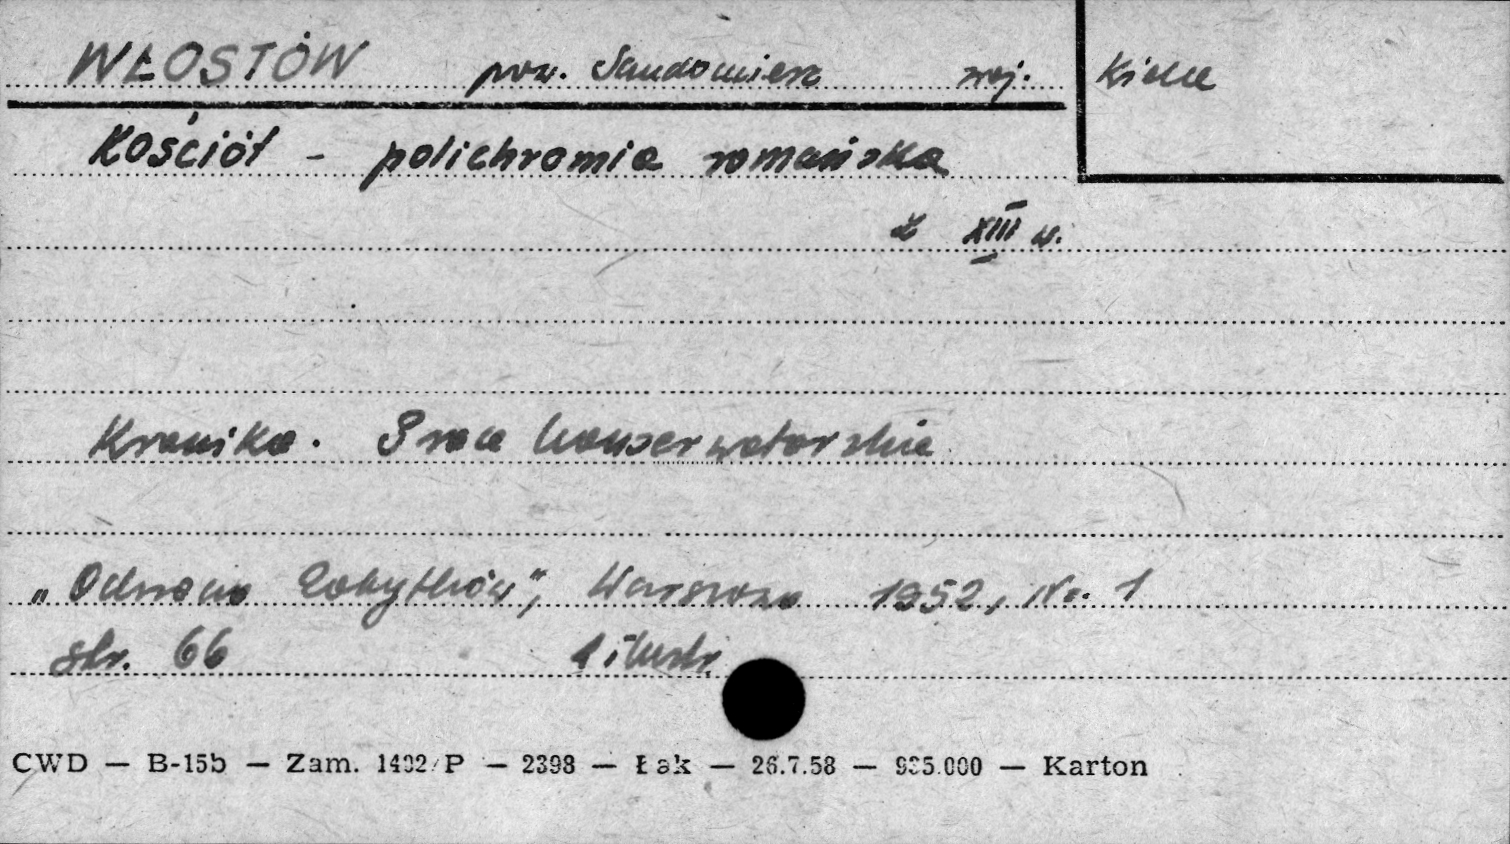 WŁOSTÓW pow. Sandomierz woj. Kielce
Kościół - polichromia romańska
z XIII w.
Kronika. Prace konserwatorskie
„Ochrona Zabytków", Warszawa 1952, Nr. 1
str. 66 1 ilustr.
CWD — B-15b — Zam. 1402/P — 2398 — Łak — 26.7.58 — 935.000 — Karton